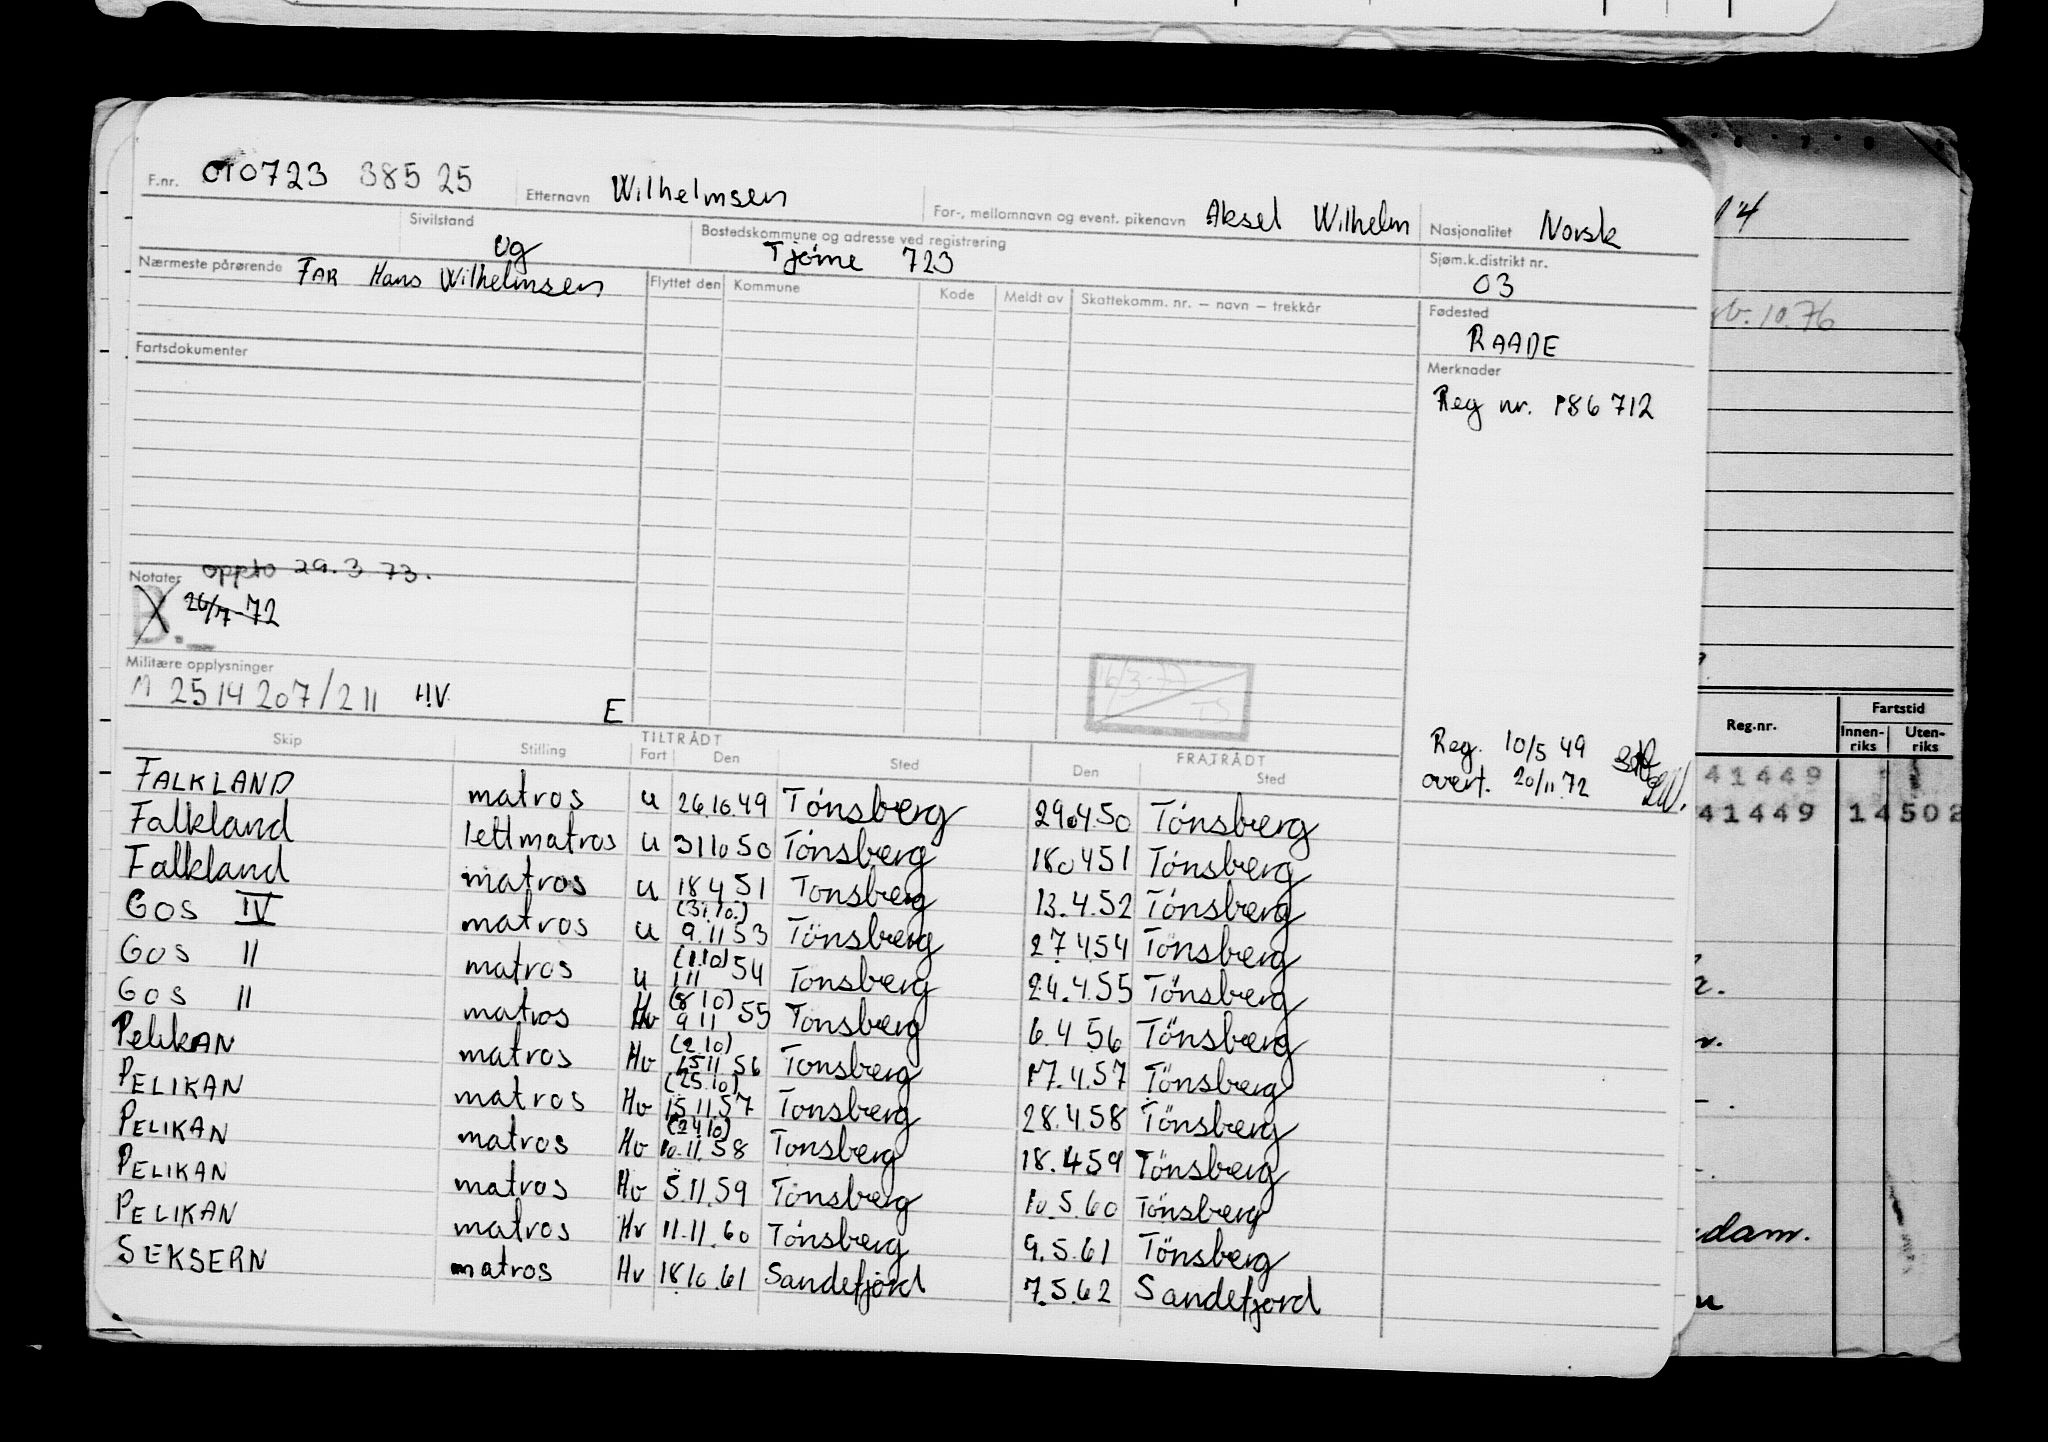 F.nr. 010723 385 25 Etternavn Wilhelmsen For-, mellomnavn og event. pikenavn Aksel Wilhelm Nasjonalitet Norsk
Sivilstand ug Bostedskommune og adresse ved registrering Tjöme 723 Sjøm.k.distrikt nr. 03
Nærmeste pårørende FAR Hans Wilhelmsen Flyttet den Kommune Kode Meldt av Skattekomm. nr. – navn – trekkår Fødested
RAADE
Fartsdokumenter
Merknader
Reg nr. P86 712
Notater 29.3 73.
B. 26/7-72
Militære opplysninger
M 25 14 207/211 H.V. E
16/3-77
TS
Reg. 10/5 49
overt. 20/11 72
Skip Stilling TILTRÅDT Fart Den Sted FRATRÅDT Den Sted
FALKLAND matros u 26.10.49 Tönsberg 29.4.50 Tönsberg
Falkland lettmatros u 31 10 50 Tönsberg 18.451 Tönsberg
Falkland matros u 18 4 51 Tonsberg 13.4.52 Tönsberg
GOS IV matros u (31.10.) 9.11 53 Tönsberg 27.454 Tönsberg
GOS II matros u (1.10) 1 11 54 Tonsberg 24.4.55 Tönsberg
GOS II matros Hv (8 10) 9 11 55 Tonsberg 6.4 56 Tönsberg
PelikAN matros Hv (2.10) 15 11 56 Tonsberg 17.4.57 Tönsberg
PELIKAN matros Hv (25.10) 15.11.57 Tonsberg 28.4.58 Tönsberg
PELIKAN matros Hv (24 10) 10.11.58 Tonsberg 18.459 Tönsberg
PELIKAN matros Hv 5.11.59 Tönsberg 10.5.60 Tönsberg
PELIKAN matros Hv 11.11.60 Tönsberg 9.5.61 Tönsberg
SEKSERN matros Hv 18.10.61 Sandefjord 7.5.62 Sandefjord
14
10.76
Reg.nr. Fartstid
Innen-riks Uten-riks
41449
41449 14502
dam.